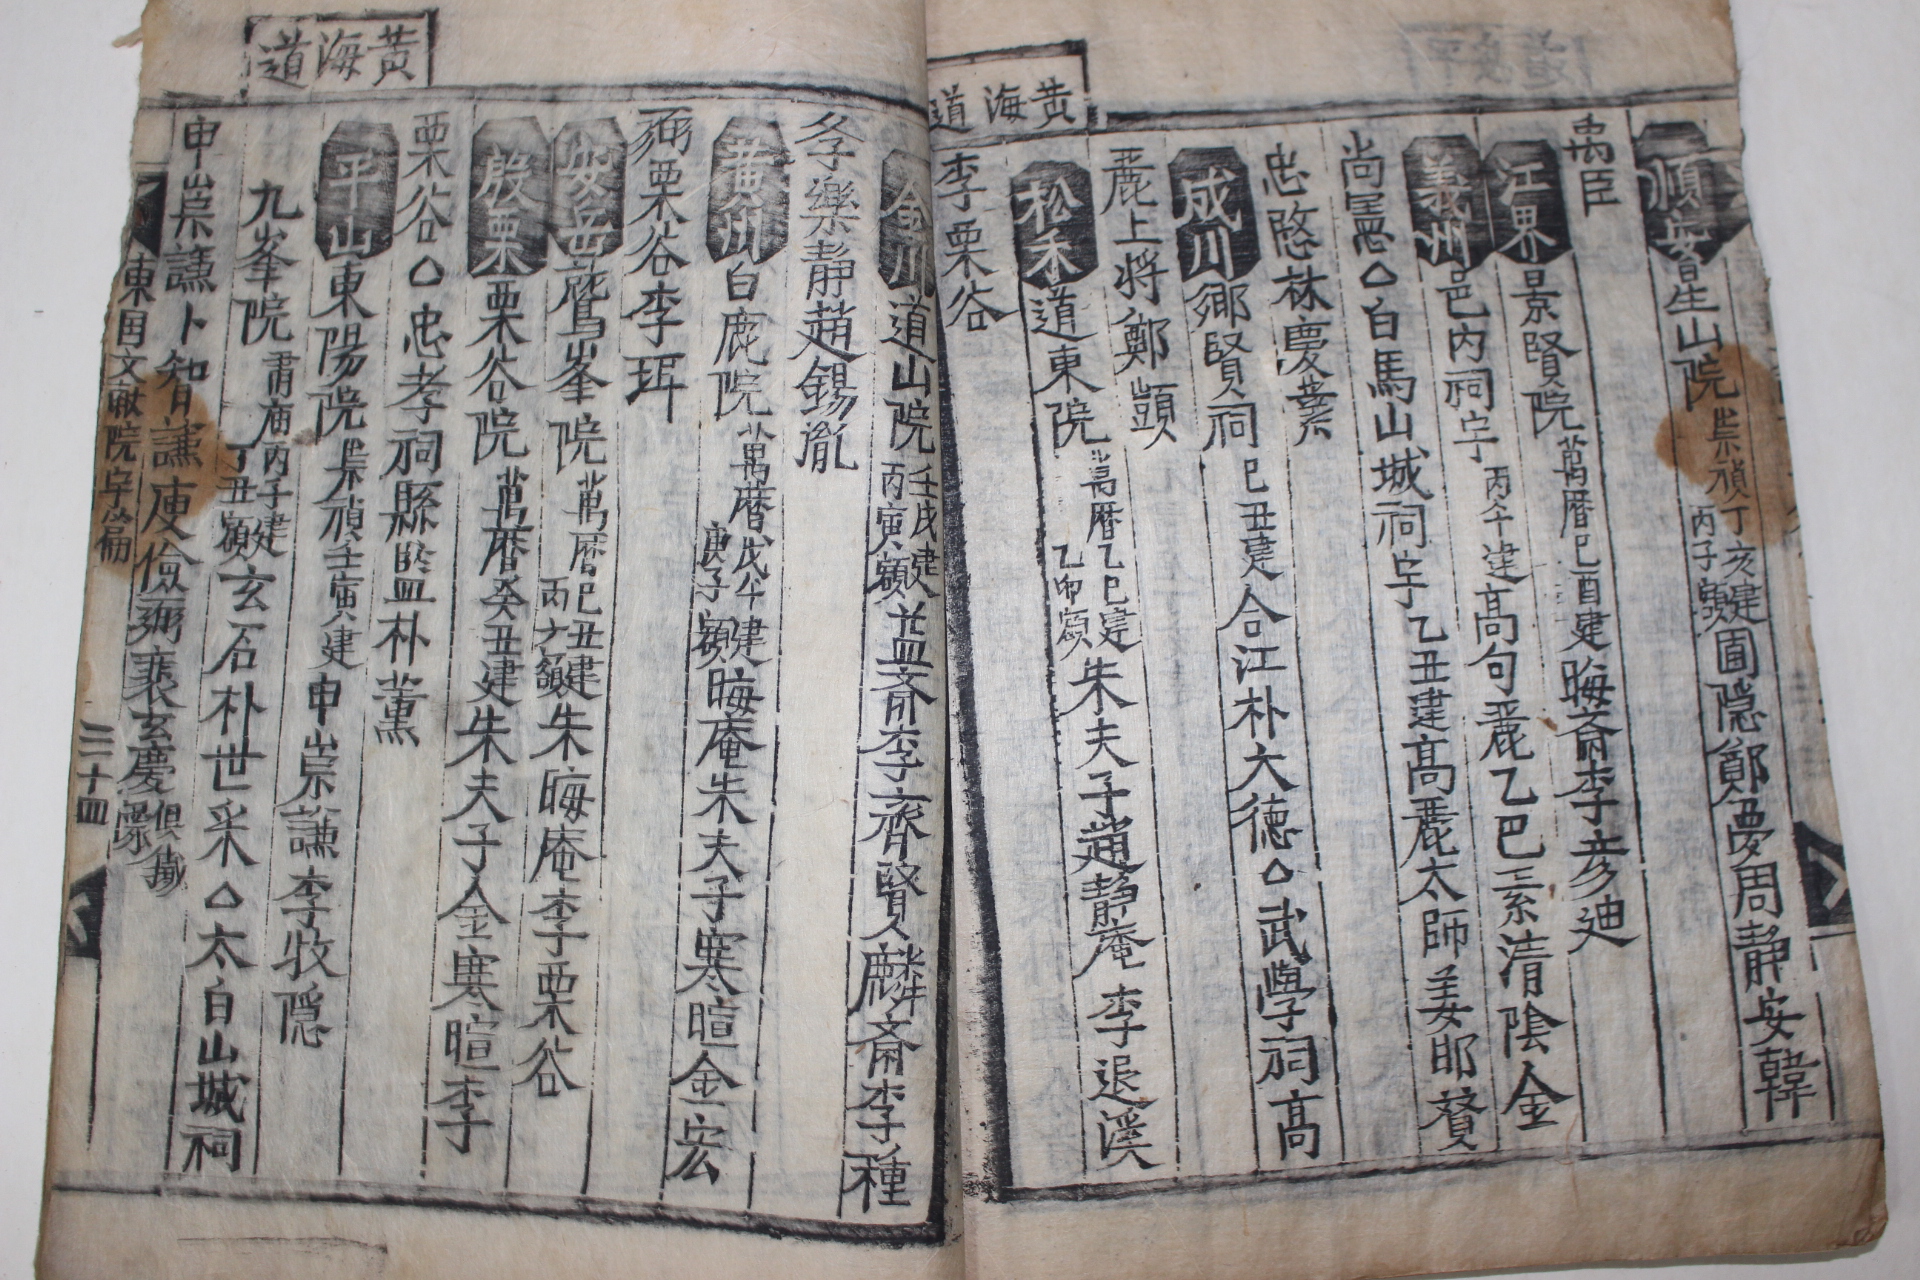 黃海道
順安星山院崇禎丁亥建丙子額圃隱鄭夢周靜安韓
禹臣
江界景賢院萬曆己酉建晦齋李彦迪
義州邑内祠宇丙午建高句麗乙巴素淸陰金
尚憲△白馬山城祠宇乙丑建高麗太師姜邯贊
忠愍林慶業
成川鄉賢祠己丑建合江朴大德△武學祠高
麗上將鄭顗
松禾道東院萬曆乙巳建乙卯額朱夫子趙靜庵李退溪
李栗谷
黃海道
金川道山院壬戌建丙寅額益齋李齊賢麟齋李種
學樂靜趙錫胤
黃州白鹿院萬曆戊午建庚子額晦庵朱夫子寒暄金宏
弼栗谷李珥
安岳鷲峯院萬曆己丑建朱晦庵李栗谷
殷栗栗谷院萬曆癸丑建朱夫子金寒暄李
栗谷△忠孝祠縣監朴薰
平山東陽院崇禎壬寅建申崇謙李牧隱
九峯院肅廟丙子建丁丑額玄石朴世采△太白山城祠
申崇謙卜智謙庾儉弼裵玄慶俱鐵像
東國文獻院宇篇
三十四